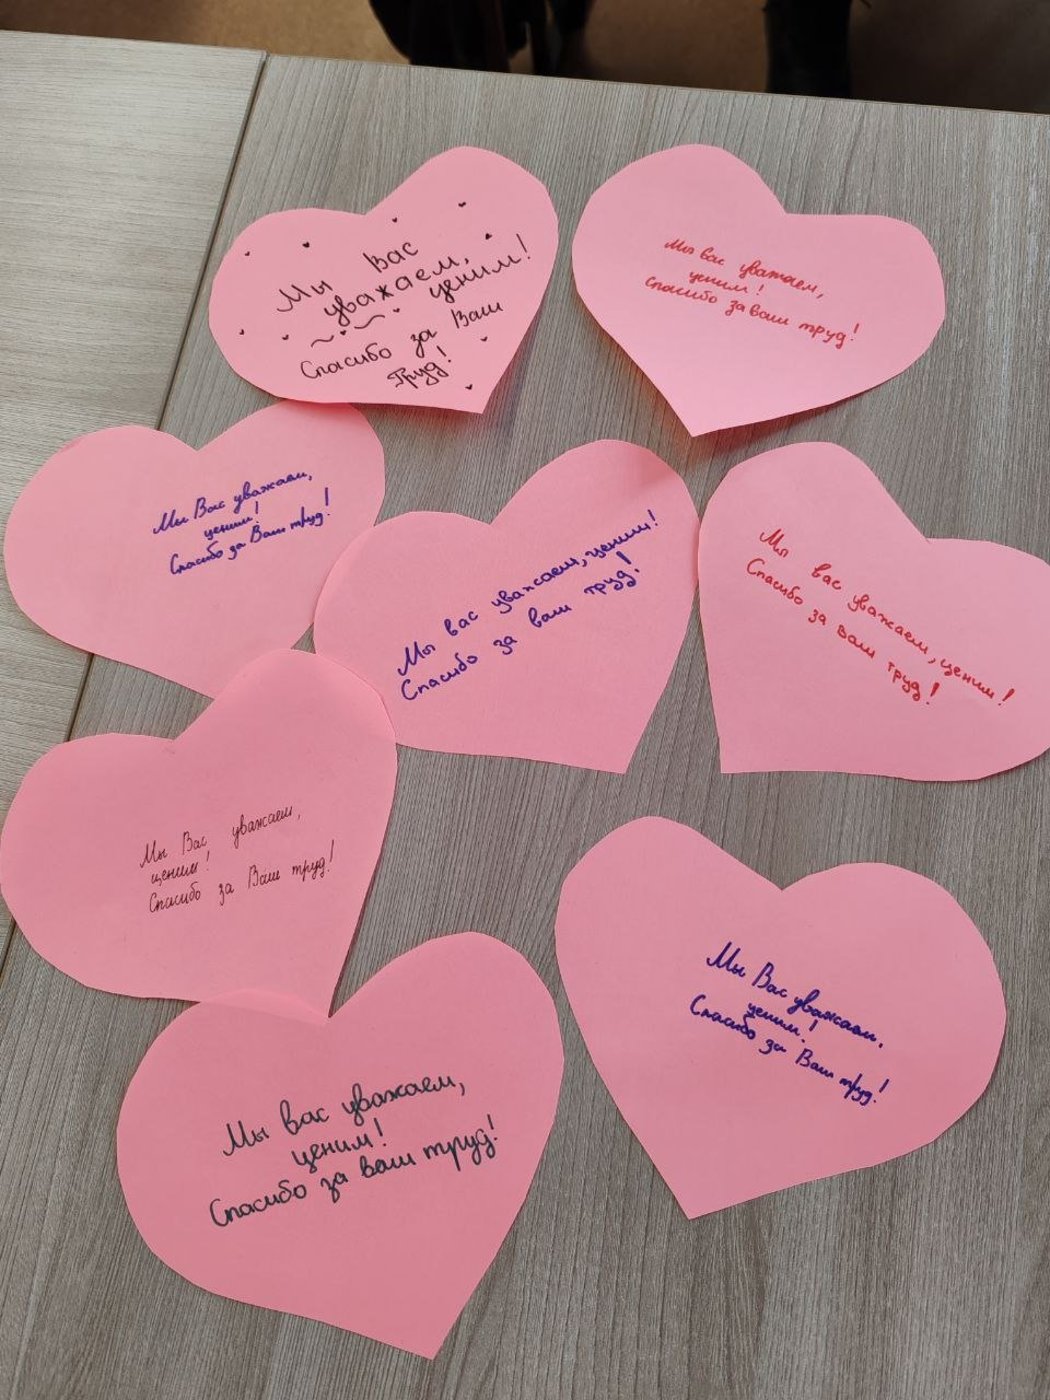 Мы Вас
уважаем,
ценим!
Спасибо за Ваш
Труд!
Мы вас уважаем,
ценим!
Спасибо за ваш труд!
Мы Вас уважаем,
ценим!
Спасибо за Ваш труд!
Мы вас уважаем, ценим!
Спасибо за ваш труд!
Мы вас уважаем, ценим!
Спасибо за ваш труд!
Мы Вас уважаем,
ценим!
Спасибо за Ваш труд!
Мы Вас уважаем,
ценим!
Спасибо за Ваш труд!
Мы вас уважаем,
ценим!
Спасибо за ваш труд!